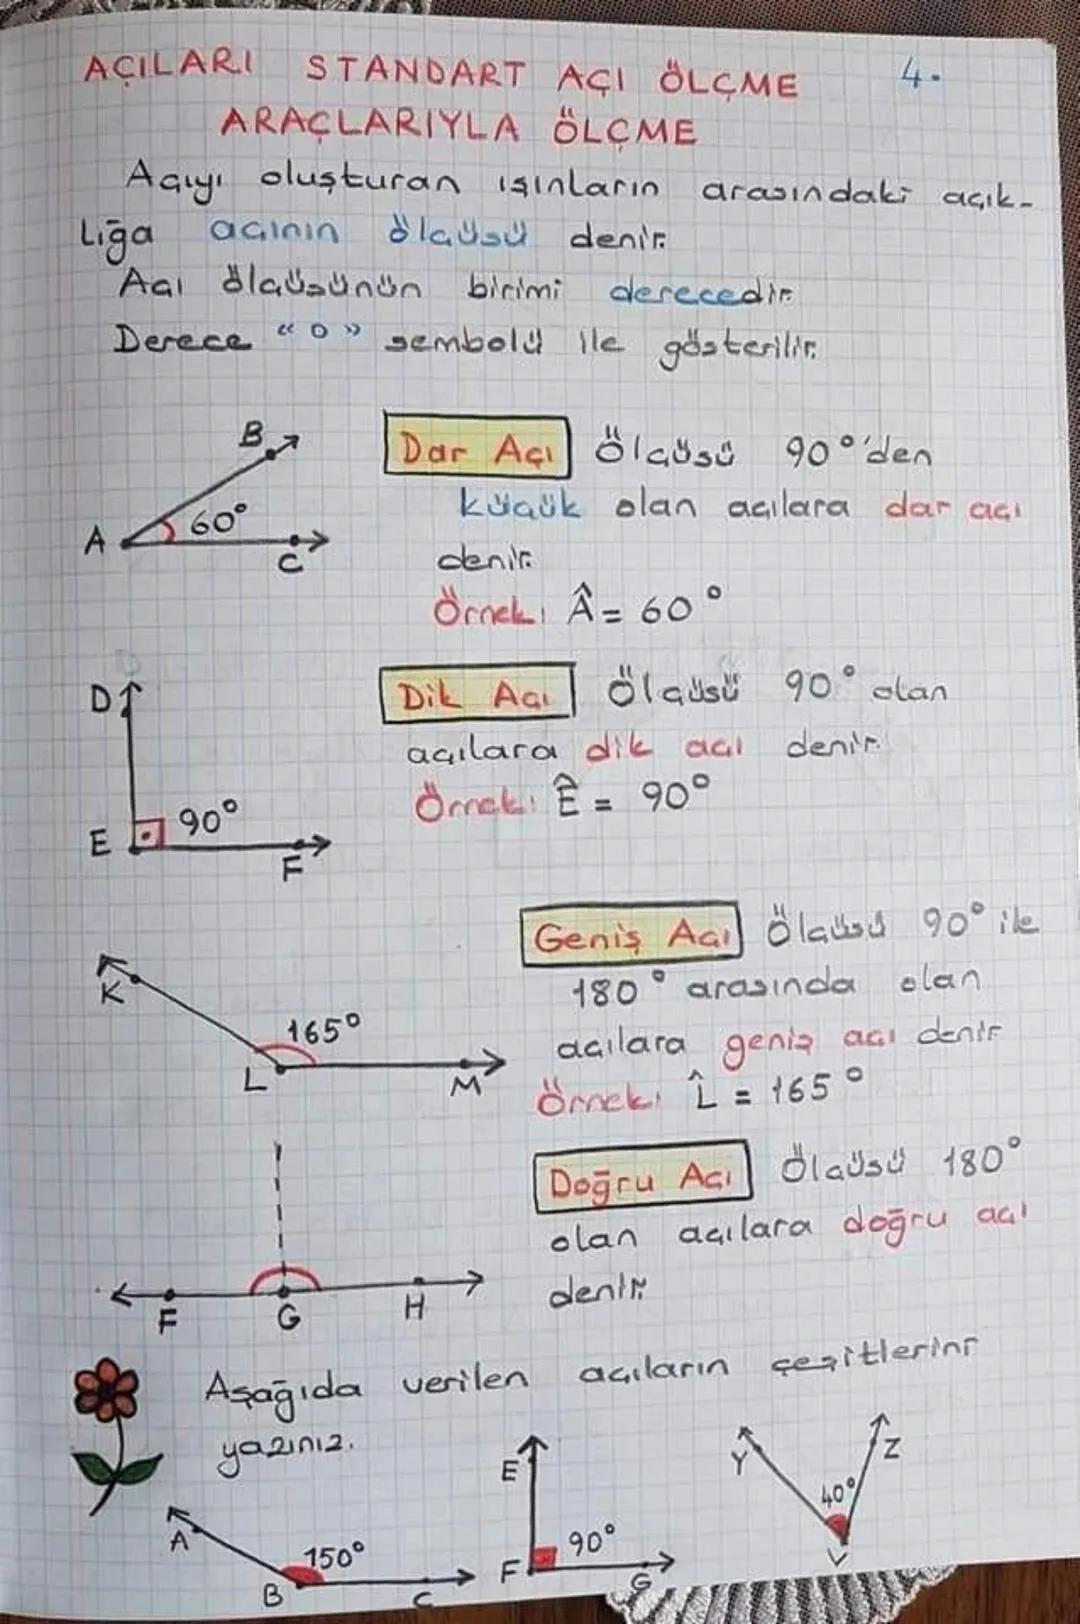 AÇILARI STANDART AÇI ÖLÇME 4.
ARAÇLARIYLA ÖLÇME
Açıyı oluşturan ışınların arasındaki açık-
lığa açının ölçüsü denir.
Açı ölçüsünün birimi derecedir.
Derece "°" sembolü ile gösterilir.
B
A 60° C
Dar Açı Ölçüsü 90°'den
küçük olan açılara dar açı
denir.
Örnek: Â = 60°
D
E 90° F
Dik Açı Ölçüsü 90° olan
açılara dik açı denir.
Örnek: Ê = 90°
K 165°
L M
Geniş Açı Ölçüsü 90° ile
180° arasında olan
açılara geniş açı denir
Örnek: L̂ = 165°
F G H
Doğru Açı Ölçüsü 180°
olan açılara doğru açı
denir.
Aşağıda verilen açıların çeşitlerini
yazınız.
A 150° B C
E 90° F G
Y Z 40° V